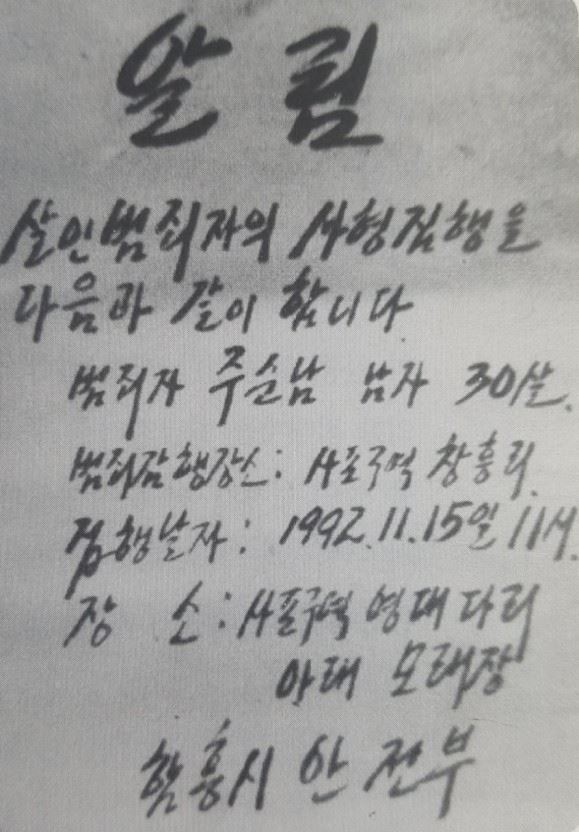 알림
살인범죄자의 사형집행을
다음과 같이 합니다
범죄자 주순남 남자 30살.
범죄감행장소: 사포구역 창흥리.
집행날자: 1992.11.15일 11시.
장 소: 사포구역 영대다리
아래 모래장
함흥시 안전부